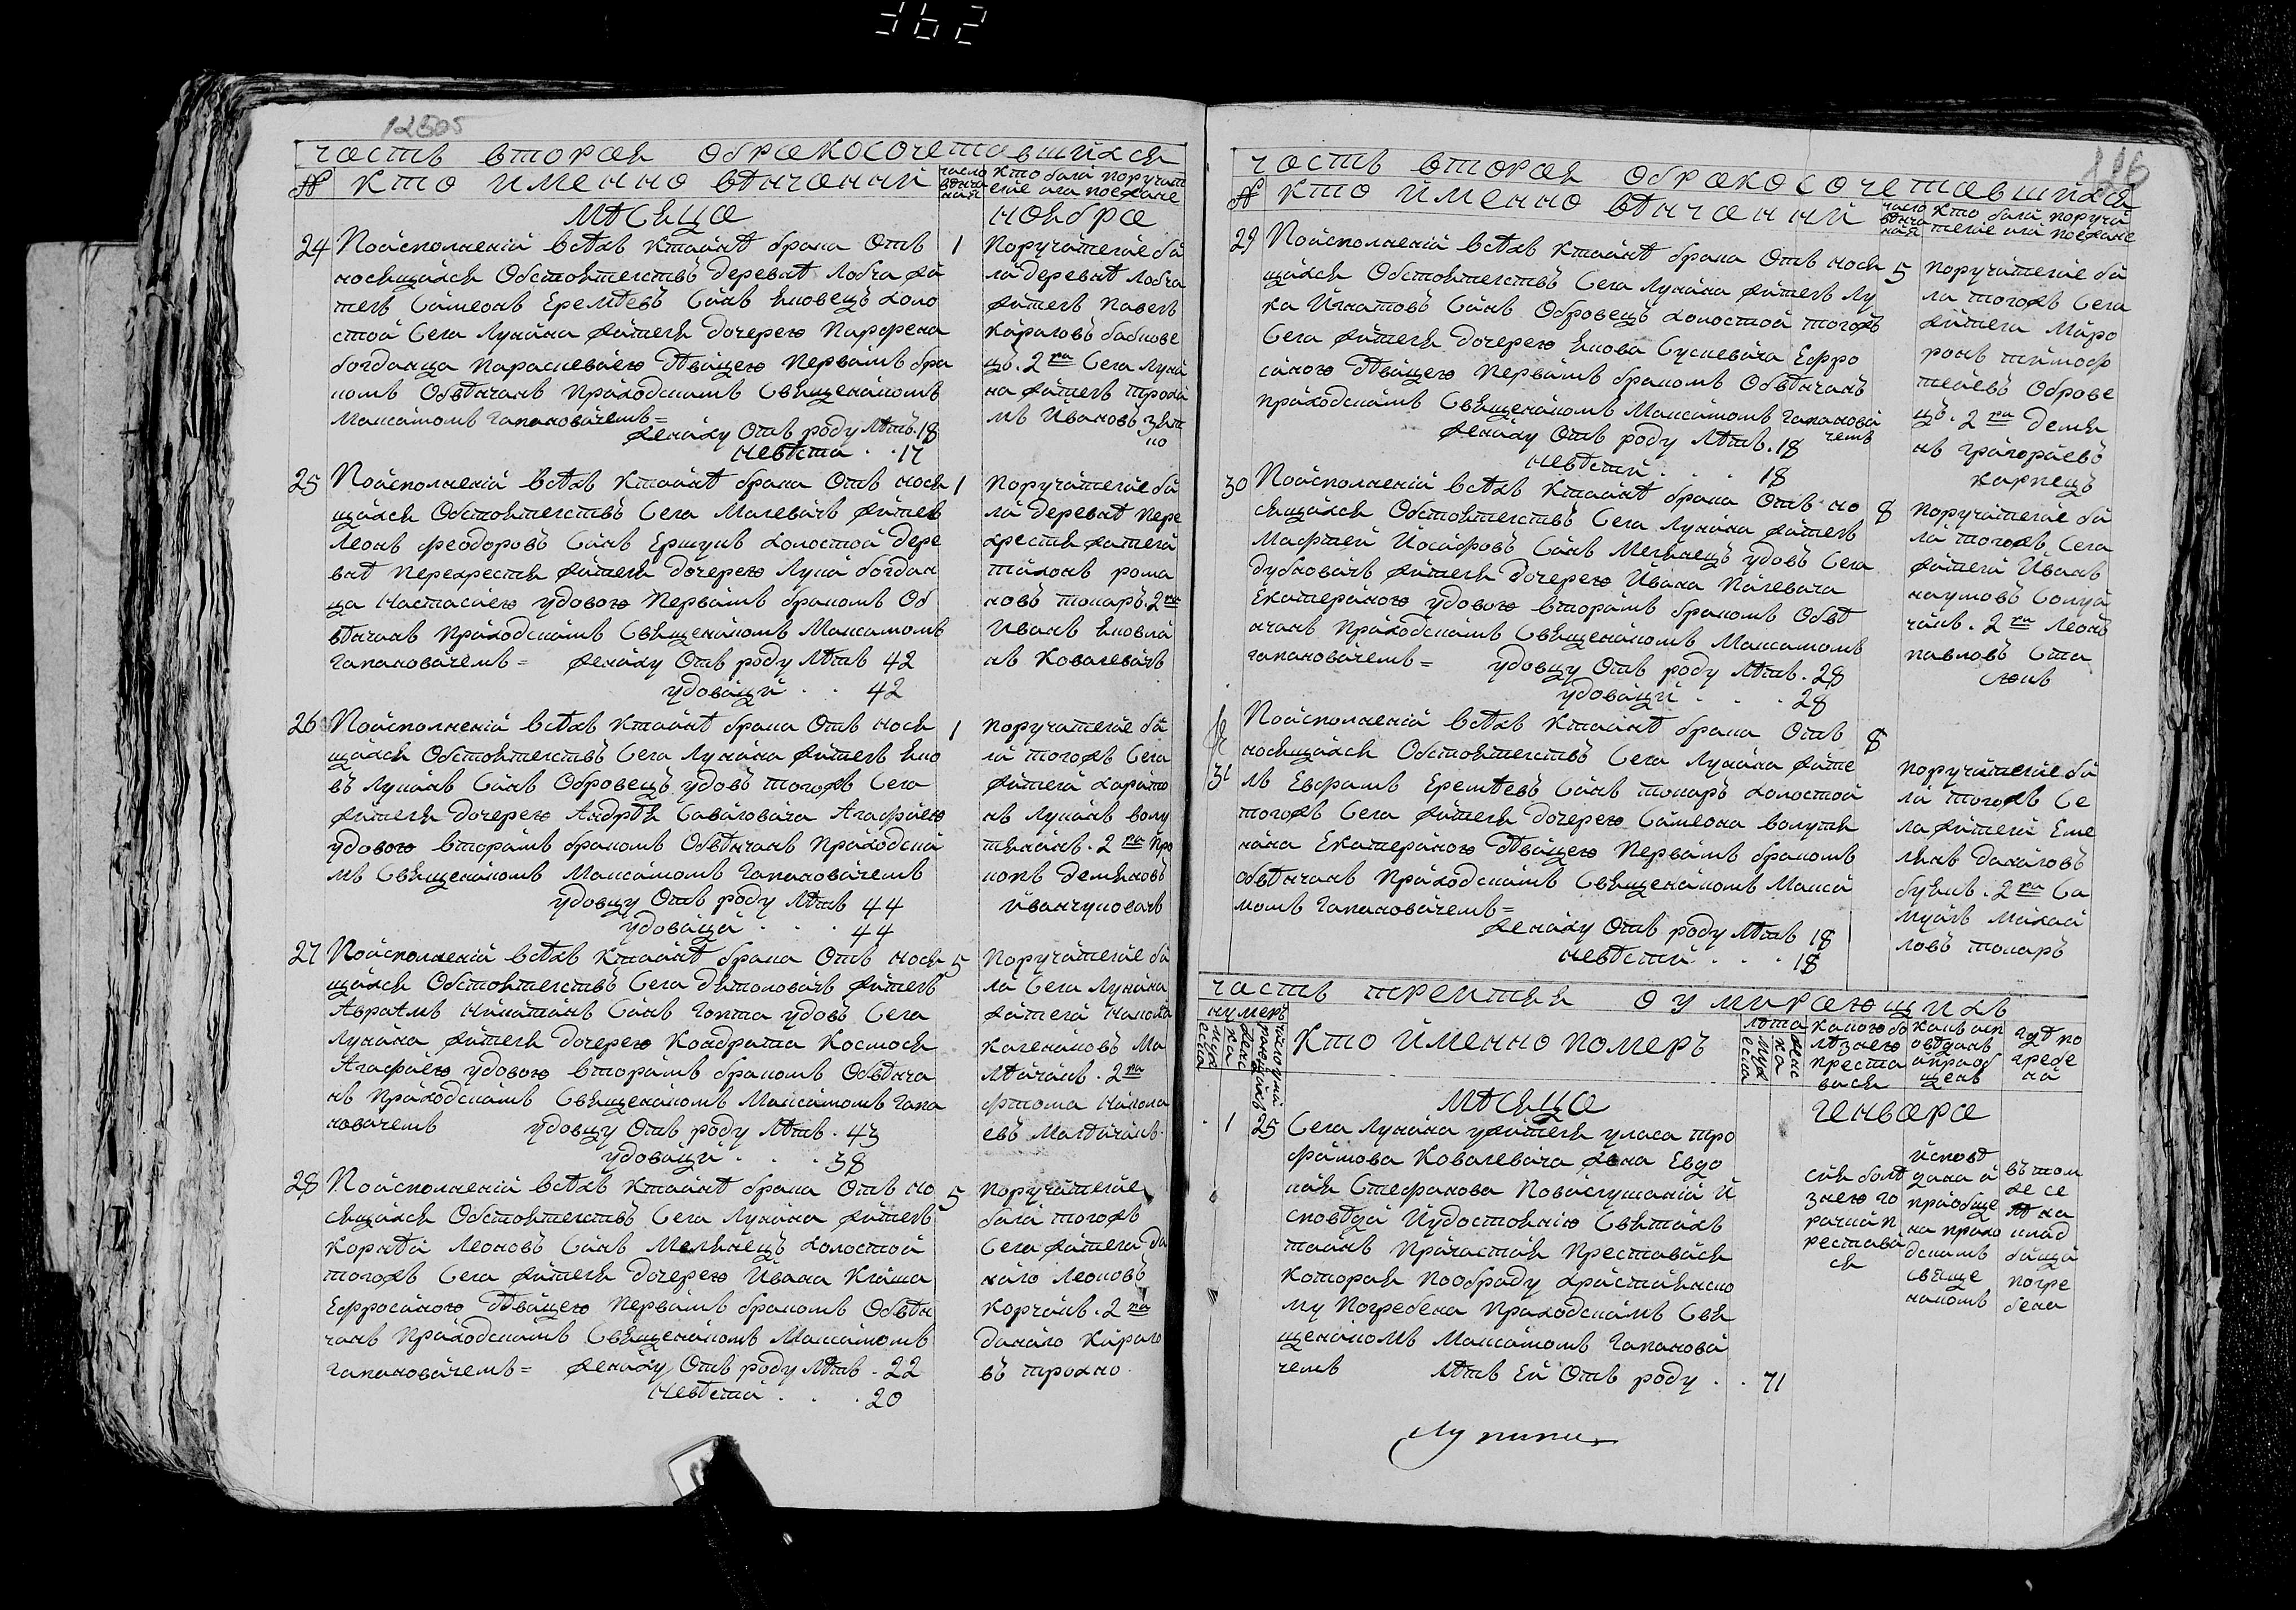 362
12505
часть вторая обракосочетавшихся
№ кто именно вѣнчаний число вѣнчания кто были поручители или поезжане
мѣсяца ноября
24 Поисполнении всѣхъ ктаинѣ брака Отъ 1
носящихся Обстоятельствъ деревнѣ Лобча жи
тель Симеонъ Еремѣевъ Синъ Яковецъ холо
стой Села Лунина жителя дочерею Парфена
богданца Параскевиею дѣвицею Первимъ бра
комъ Обвѣнчанъ Приходскимъ Священикомъ
Максимомъ Гапановичемъ=
жениху Отъ роду лѣтъ. 18
невѣста . . 17
Поручителие би
ли деревнѣ Лобча
житель Павелъ
Кириловъ бабкове
цъ. 2й Села Луни
на житель трохи
мъ Ивановъ
25 Поисполнении всѣхъ Ктаинѣ брака Отъ нося 1
щихся Обстоятельствъ Села Малевичъ житель
Леонъ Феодоровъ Синъ Ершукъ холостой дере
внѣ Перехрестя жителя дочерею Луки богдан
ца Настасиею удовою Первимъ бракомъ Об
вѣнчанъ Приходскимъ Священикомъ Максимомъ
гапановичемъ = жениху Отъ роду лѣтъ 42
удовици . . 42
Поручителие би
ли деревнѣ Пере
хрестя жители
тихонъ рома
новъ токаръ. 2й
Иванъ Яковли
нъ Ковалевичъ
26 Поисполнении всѣхъ Ктаинѣ брака Отъ нося 1
щихся Обстоятельствъ Села Лунина житель Яко
въ Лукинъ Синъ Обровецъ удовъ тогожъ Села
жителя дочерею Андрѣя Савиловича Агафиею
удовою вторимъ бракомъ Обвѣнчанъ Приходски
мъ Священикомъ Максимомъ Гапановичемъ
удовцу Отъ роду лѣтъ 44
удовица . . . 44
поручителие би
ли тогожъ Села
жители харито
нъ Лукинъ волу
тянинъ. 2й Про
копъ демяновъ
иванчуковичъ
27 Поисполнении всѣхъ Ктаинѣ брака Отъ нося 5
щихся Обстоятельствъ Села Дятоловичъ житель
Авраамъ Никитинъ Синъ Гопта удовъ Села
Лунина жителя дочерею Кондрата Костюся
Агафиею удовою вторимъ бракомъ Обвѣнча
нъ Приходскимъ Священикомъ Максимомъ Гапа
новичемъ удовцу Отъ роду лѣтъ . 43
удовици . . . 38
Поручителие би
ли Села Лунина
жители Никола
Калениковъ Ма
лѣчичъ. 2й
Фтома Никола
евъ Малѣчичъ.
28 Поисполнении всѣхъ Ктаинѣ брака Отъ но 5
сящихся Обстоятельствъ Села Лунина житель
Корнѣй Леоновъ Синъ Мелянецъ холостой
тогожъ Села жителя дочерею Ивана Клиша
Ефросиною дѣвицею Первимъ бракомъ Обвѣн
чанъ Приходскимъ Священикомъ Максимомъ
гапановичемъ= жениху Отъ роду лѣтъ . 22
невѣсти . . . 20
Поручителие
били тогожъ
Села жители Да
нило Леоновъ
Корчикъ. 2й
Данило Кирило
въ трохно.
116
часть вторая обракосочетавшихся
№ кто именно вѣнчаний число вѣнчания кто били поручителие или поезжане
29 Поисполнении всѣхъ Ктаинѣ брака Отъ нося 5
щихся Обстоятельствъ Села Лунина житель Лу
ка Игнатовъ Синъ Обровецъ холостой тогожъ
Села жителя дочерею Якова Сускевича Ефро
синою дѣвицею Первимъ бракомъ Обвѣнчанъ
приходскимъ Священикомъ Максимомъ гапанови
чемъ
жениху Отъ роду лѣтъ. 18
невѣсти . . . 18
поручителие би
ли тогожъ Села
жители Миро
ронъ тимоф
теиевъ Оброве
цъ. 2й Демя
нъ григориевъ
карпецъ
30 Поисполнении всѣхъ Ктаинѣ брака Отъ но 8
сящихся Обстоятельствъ Села Лунина житель
Мафтей Иосифовъ Синъ Мелянецъ удовъ Села
дубновичъ жителя дочерею Ивана Пилевича
Екатериною удовою вторимъ бракомъ Обвѣ
нчанъ Приходскимъ Священикомъ Максимомъ
гапановичемъ= удовцу Отъ роду лѣтъ. 28
удовици . . . 28
поручителие би
ли тогожъ Села
жители Иванъ
наумовъ Солуя
чикъ. 2й Леонъ
павловъ Ста
сюкъ
31 Поисполнении всѣхъ Ктаинѣ брака Отъ 8
носящихся Обстоятельствъ Села Лунина жите
лъ Евфимъ Еремѣевъ Синъ токаръ холостой
тогожъ Села жителя дочерею Симеона волутя
нина Екатериною дѣвицею Первимъ бракомъ
обвѣнчанъ Приходскимъ Священикомъ Макси
момъ гапановичемъ=
жениху Отъ роду лѣтъ 18
невѣсти . . . 18
поручителие би
ли тогожъ Се
ла жители Еме
лянъ даниловъ
букликъ. 2й Са
муилъ Михаи
ловъ токаръ
часть третия оумирающихъ
нумеръ кто именно померъ лѣта какою болѣзнею преставися кимъ исповѣданъ и приобщенъ гдѣ погребени
мѣсяца генваря
1 25 Села Лунина ужителя уласа тро
фимова Ковалевича жена Евдо
кия Стефанова Повислушании И
сповѣди Иудостоению Святихъ
таинъ Причастия Преставися
Которая Пообряду християнско
му Погребена Приходскимъ Свя
щеникомъ Максимомъ Гапанови
чемъ лѣтъ Ей Отъ роду . . 71
сия болѣ
знею го
рачкий п
рестави
ся
исповѣ
дана и
приобще
на прихо
дскимъ
свяще
никомъ
въ том
же се
лѣ на
клад
бищи
погре
бена